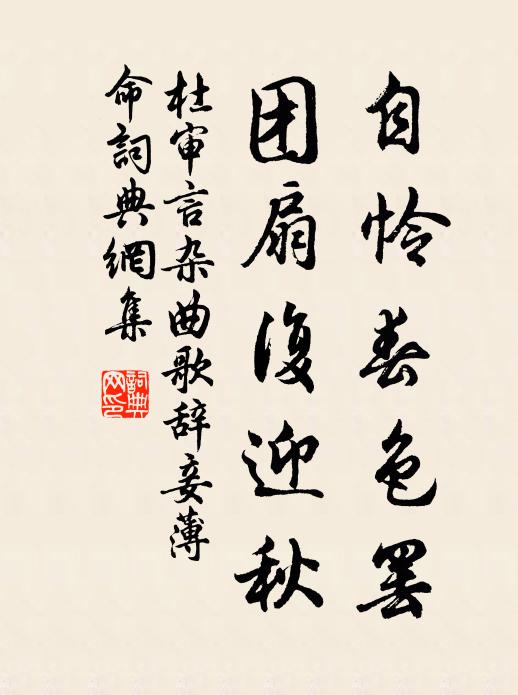 自怜春色罢
团扇复迎秋
杜审言杂曲歌辞妾薄
命詞典網集
詞典
网印